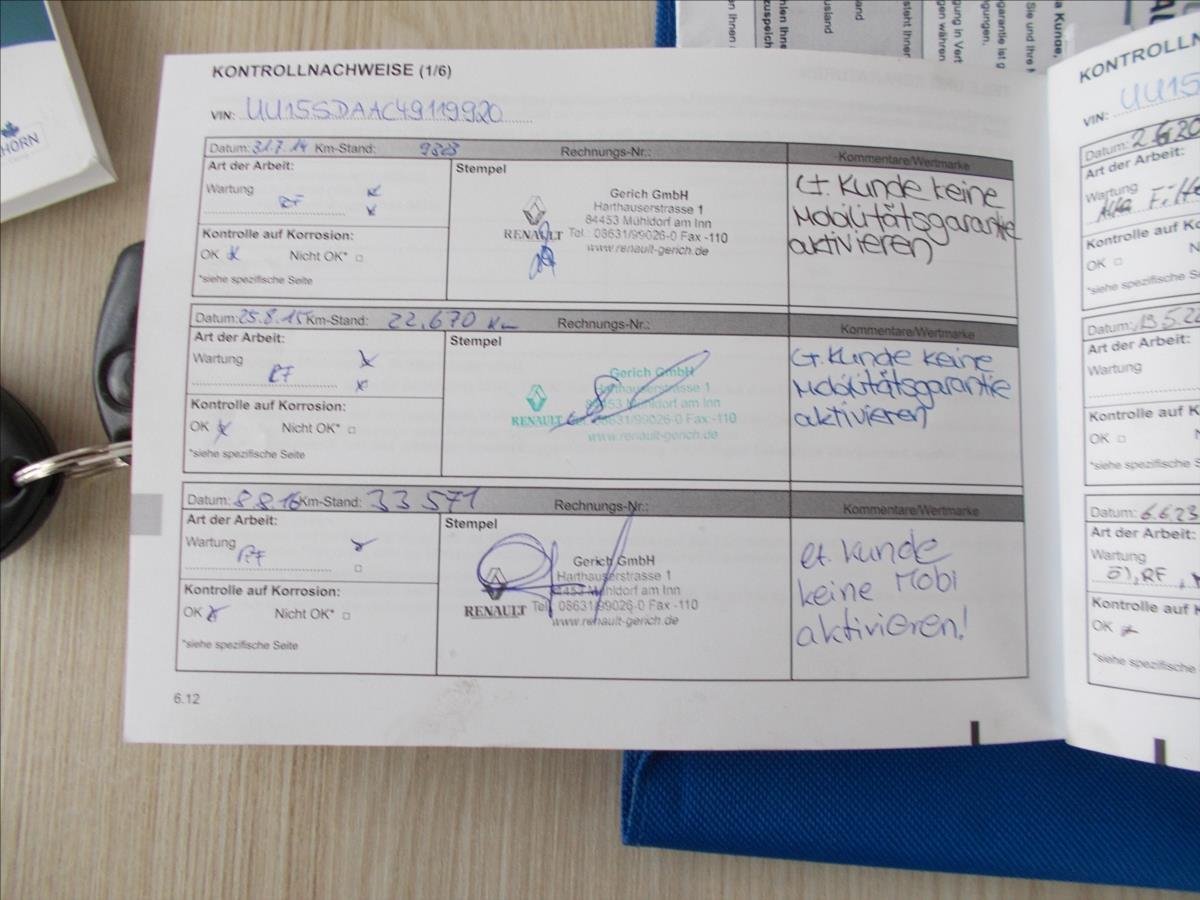 HORN
KONTROLLNACHWEISE (1/6)
VIN: UU15SDAAC49119920
Datum: 31.7.14 Km-Stand: 9323 Rechnungs-Nr.: Kommentare/Wertmarke
Art der Arbeit:
Wartung
RF
Kontrolle auf Korrosion:
OK Nicht OK*
*siehe spezifische Seite
Stempel
RENAULT
Gerich GmbH
Harthauserstrasse 1
84453 Mühldorf am Inn
Tel.: 08631/99026-0 Fax -110
www.renault-gerich.de
Lt. Kunde keine
Mobilitätsgarantie
aktivieren
Datum: 25.8.15 Km-Stand: 22.670 Km Rechnungs-Nr.: Kommentare/Wertmarke
Art der Arbeit:
Wartung
RF
Kontrolle auf Korrosion:
OK Nicht OK*
*siehe spezifische Seite
Stempel
RENAULT
Gerich GmbH
Harthauserstrasse 1
84453 Mühldorf am Inn
Tel.: 08631/99026-0 Fax -110
www.renault-gerich.de
Lt. Kunde keine
Mobilitätsgarantie
aktivieren
Datum: 8.8.16 Km-Stand: 33 571 Rechnungs-Nr.: Kommentare/Wertmarke
Art der Arbeit:
Wartung
RF
Kontrolle auf Korrosion:
OK Nicht OK*
*siehe spezifische Seite
Stempel
RENAULT
Gerich GmbH
Harthauserstrasse 1
84453 Mühldorf am Inn
Tel.: 08631/99026-0 Fax -110
www.renault-gerich.de
lt. Kunde
keine Mobi
aktivieren!
6.12
KONTROLLN
VIN: UU15
Datum: 2.6.20
Art der Arbeit:
Wartung
Kontrolle auf Ko
OK
*siehe spezifische
Datum: 19.5.22
Art der Arbeit:
Wartung
Kontrolle auf K
OK
*siehe spezifische
Datum: 6.6.23
Art der Arbeit:
Wartung
Öl, RF,
Kontrolle auf Ko
OK
*siehe spezifische